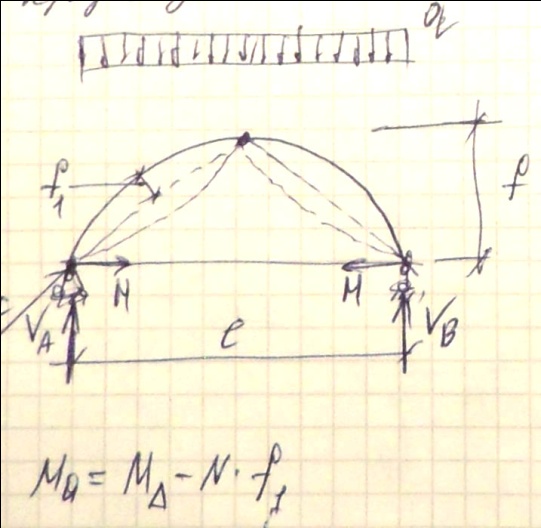 q
f₁
f
H H
V_A V_B
ℓ
M_a = M_Δ - N · f₁